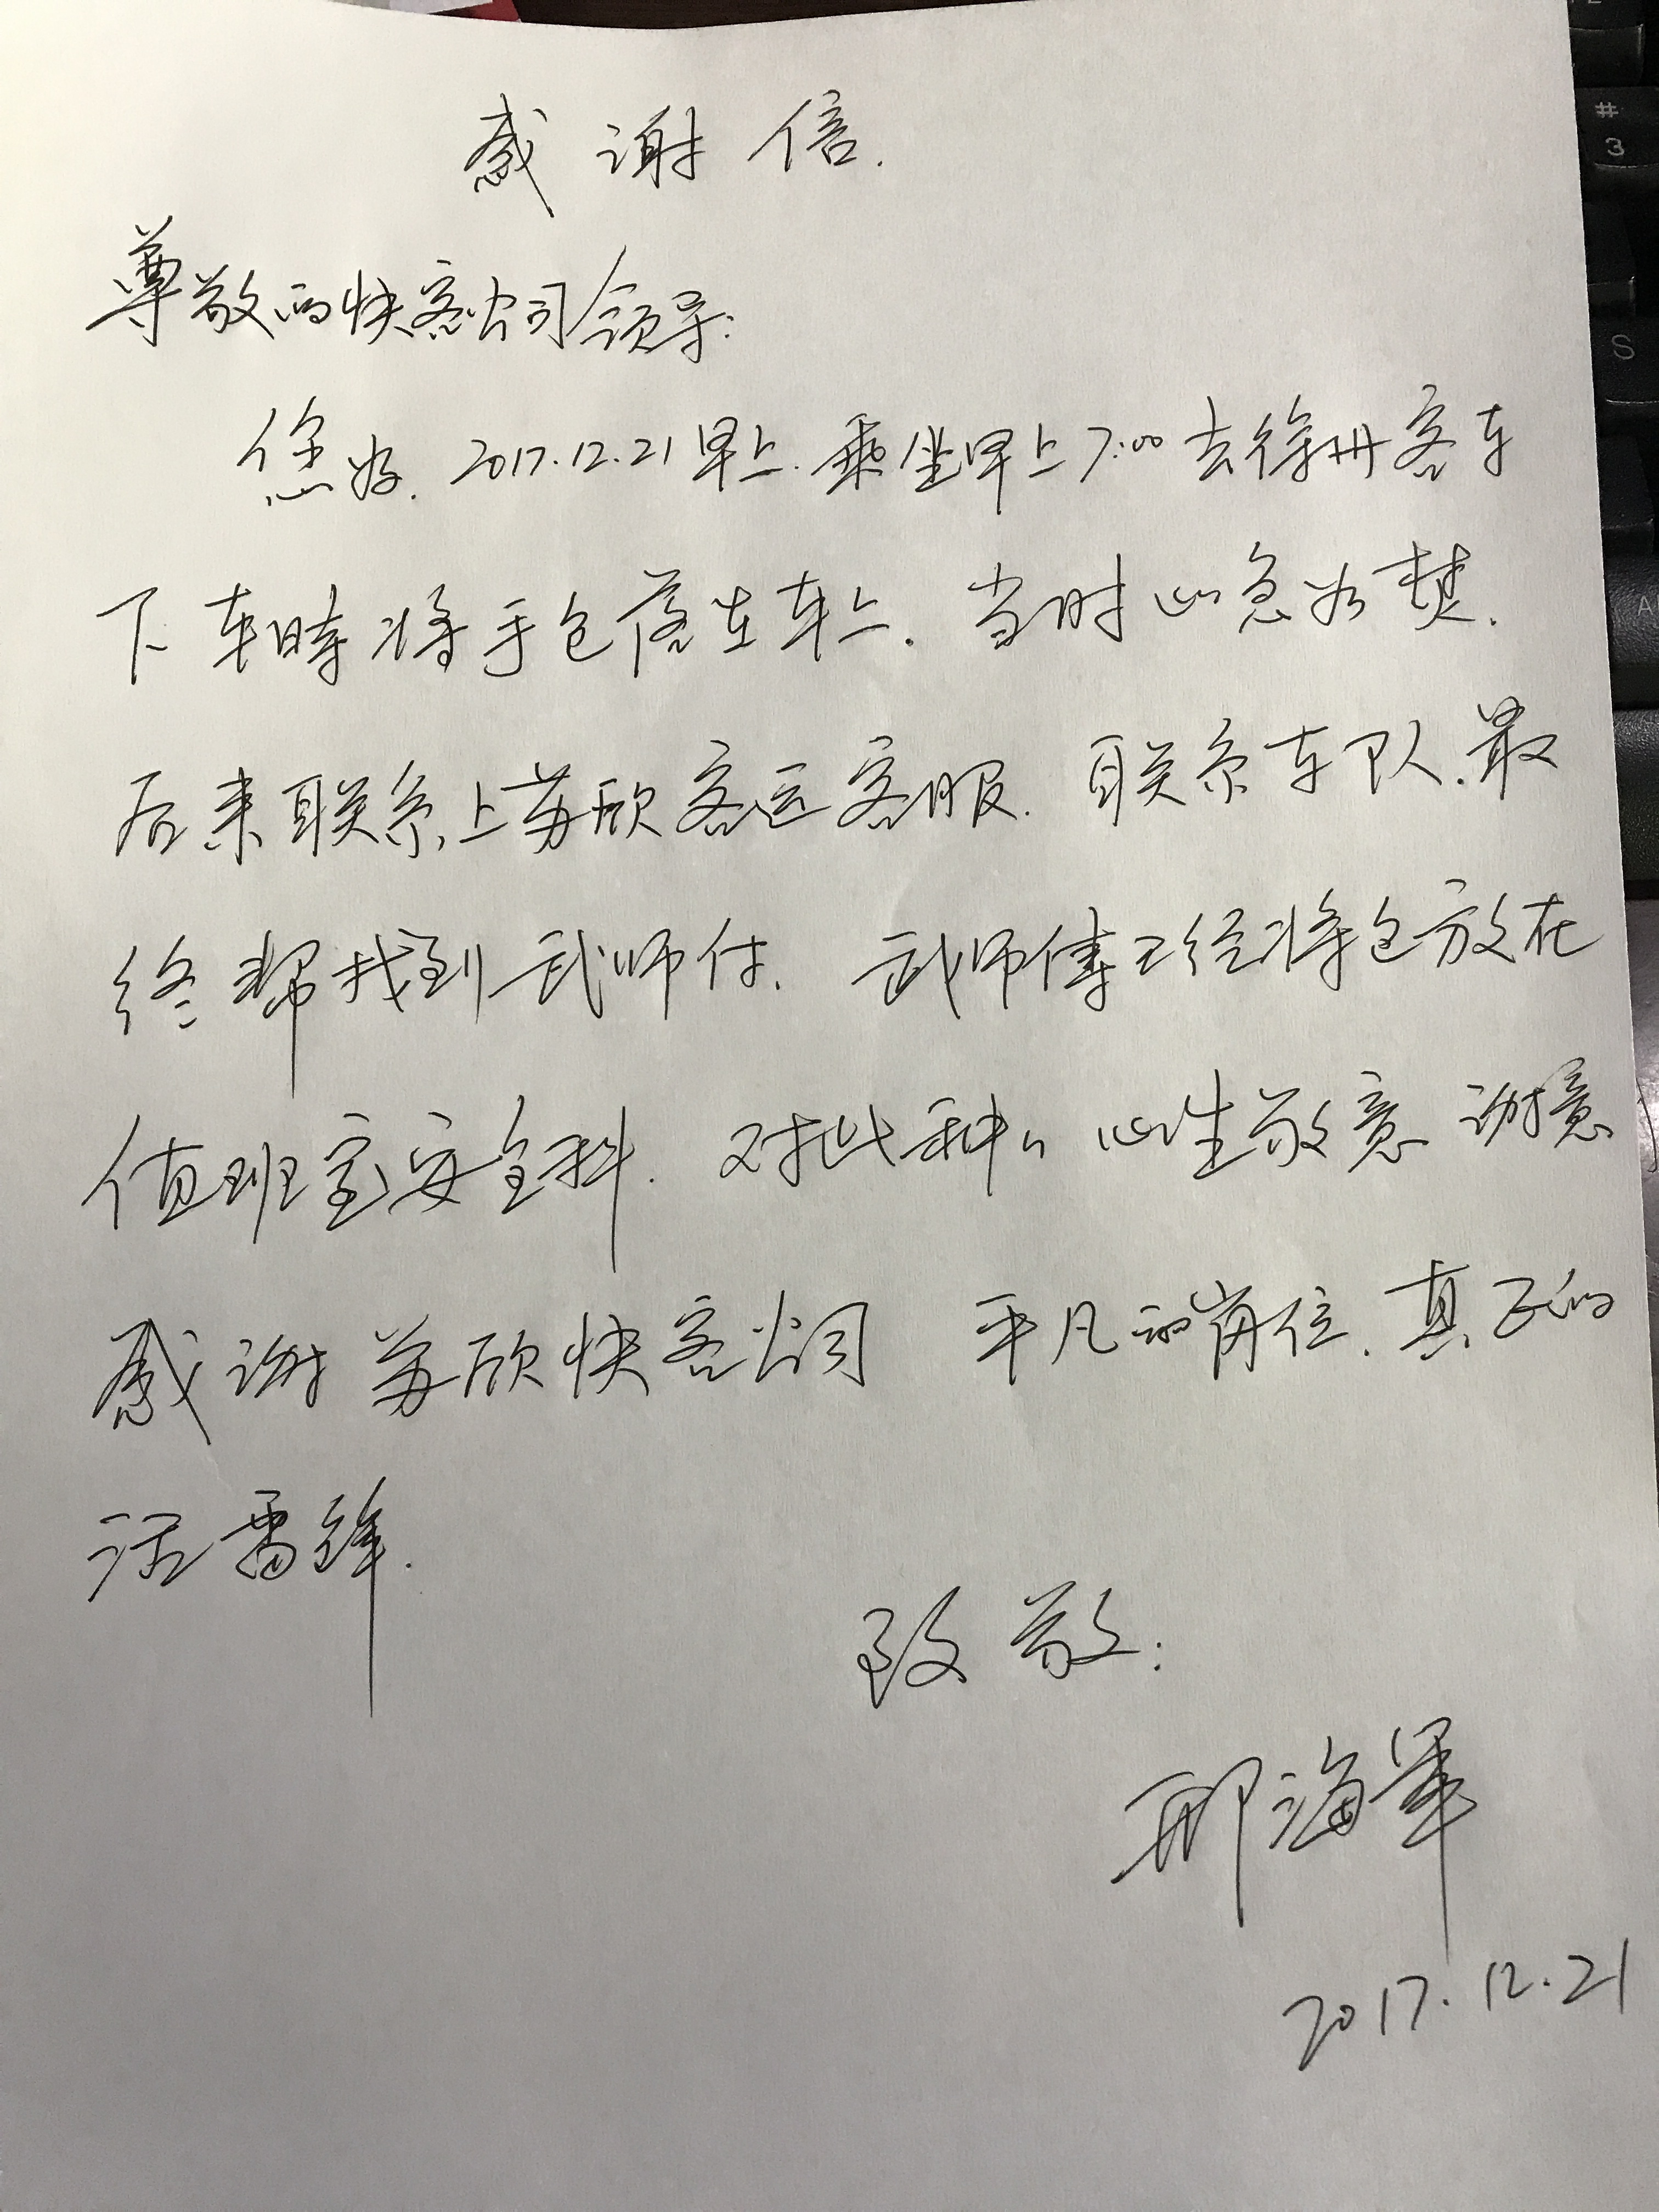 感谢信.
尊敬的快客公司领导:
您好. 2017.12.21早上. 乘坐早上7:00去徐州客车
下车时将手包落在车上. 当时心急如焚.
后来联系上苏欣客运客服. 联系车队. 最
终帮找到武师付. 武师傅已经将包放在
值班室安全科. 对此种种心生敬意 谢意
感谢苏欣快客公司 平凡的岗位. 真正的
活雷锋.
致敬:
邢海军
2017.12.21
#
3
S
A